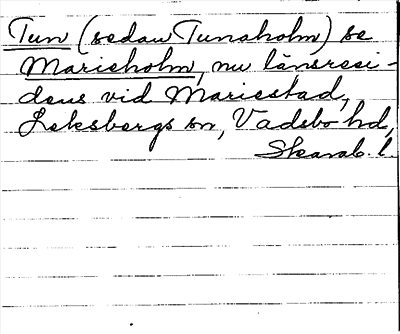 Tun (sedan Tunaholm) se
Marieholm, nu länsresi-
dens vid Mariestad,
Leksbergs sn, Vadsbo hd,
Skarab. l.